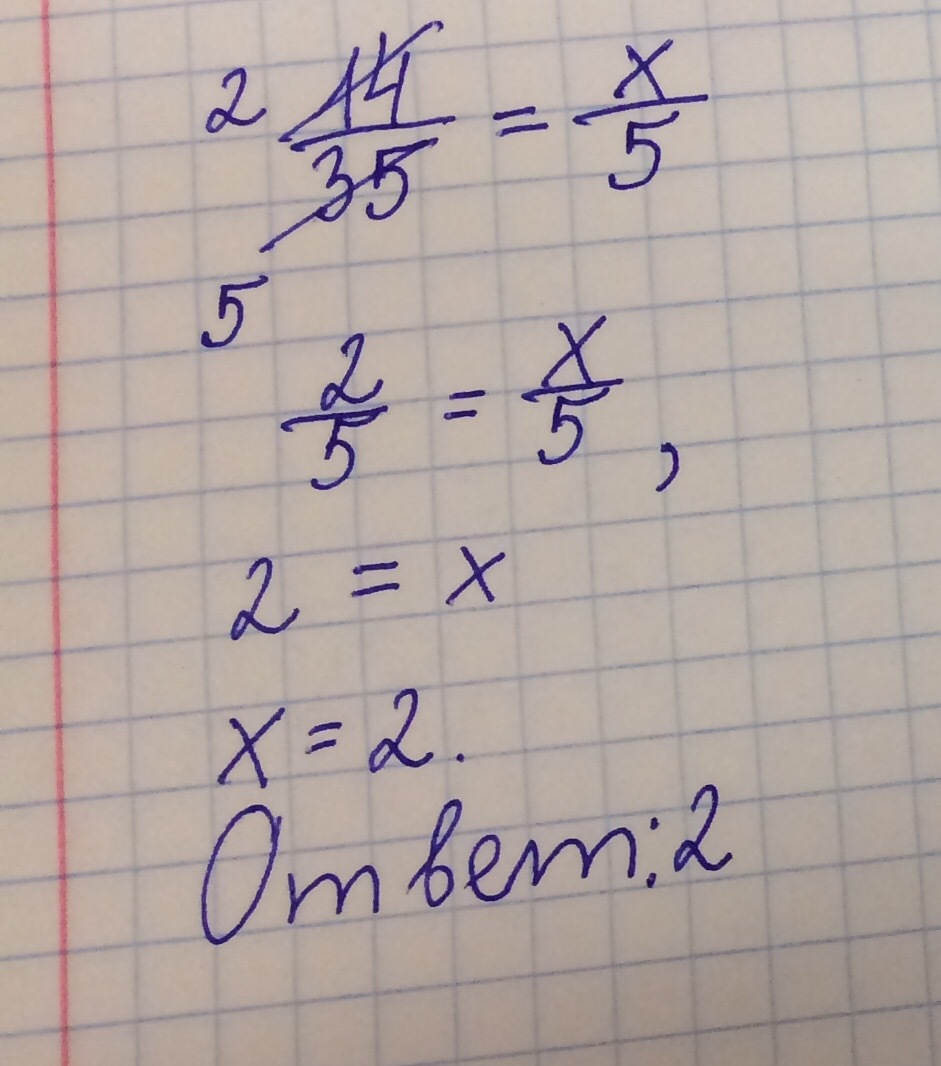 2 14/35 = x/5
5
2/5 = x/5 ,
2 = x
x = 2.
Ответ: 2